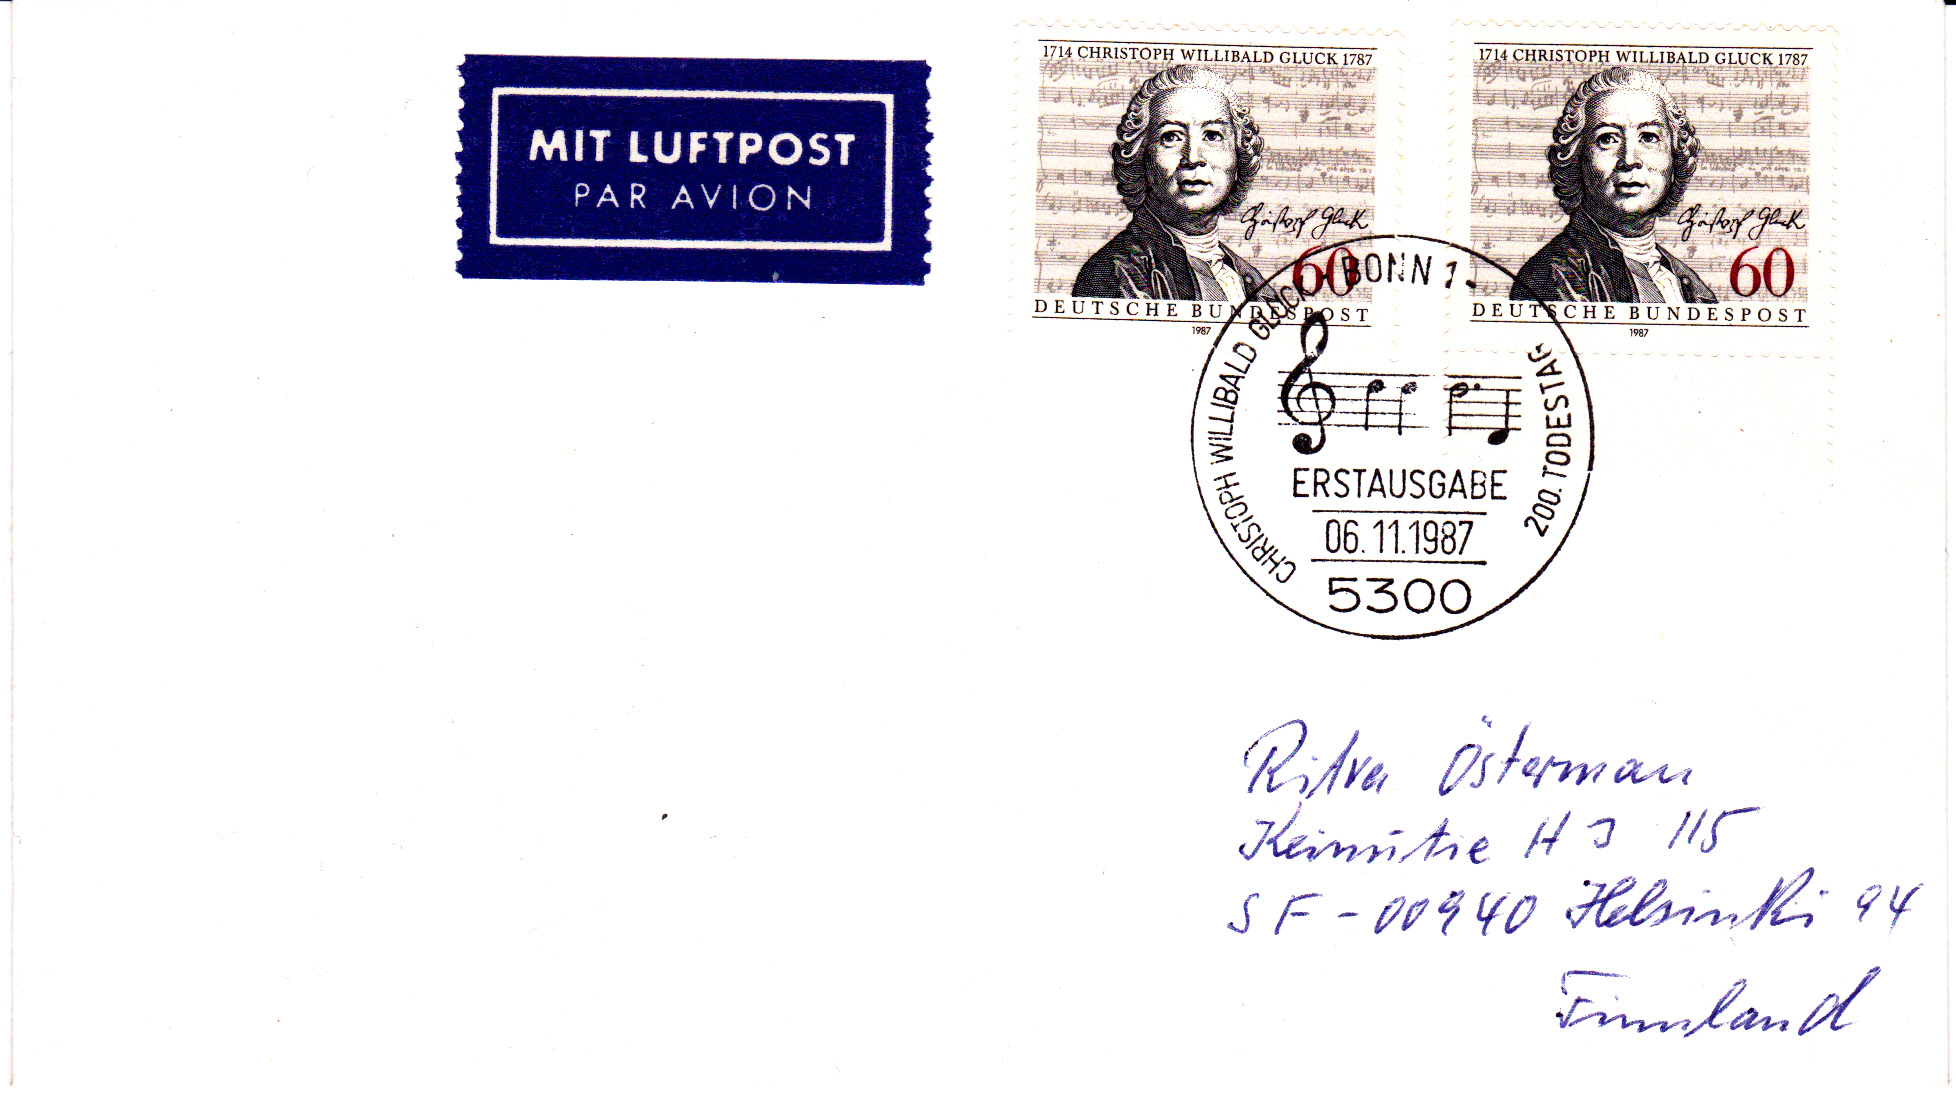 MIT LUFTPOST
PAR AVION
1714 CHRISTOPH WILLIBALD GLUCK 1787
Christoph Gluck
60
DEUTSCHE BUNDESPOST
1987
1714 CHRISTOPH WILLIBALD GLUCK 1787
Christoph Gluck
60
DEUTSCHE BUNDESPOST
1987
CHRISTOPH WILLIBALD GLUCK - BONN 1 - 200. TODESTAG
ERSTAUSGABE
06.11.1987
5300
Ritva Österman
Keinutie H 115
SF-00940 Helsinki 94
Finnland